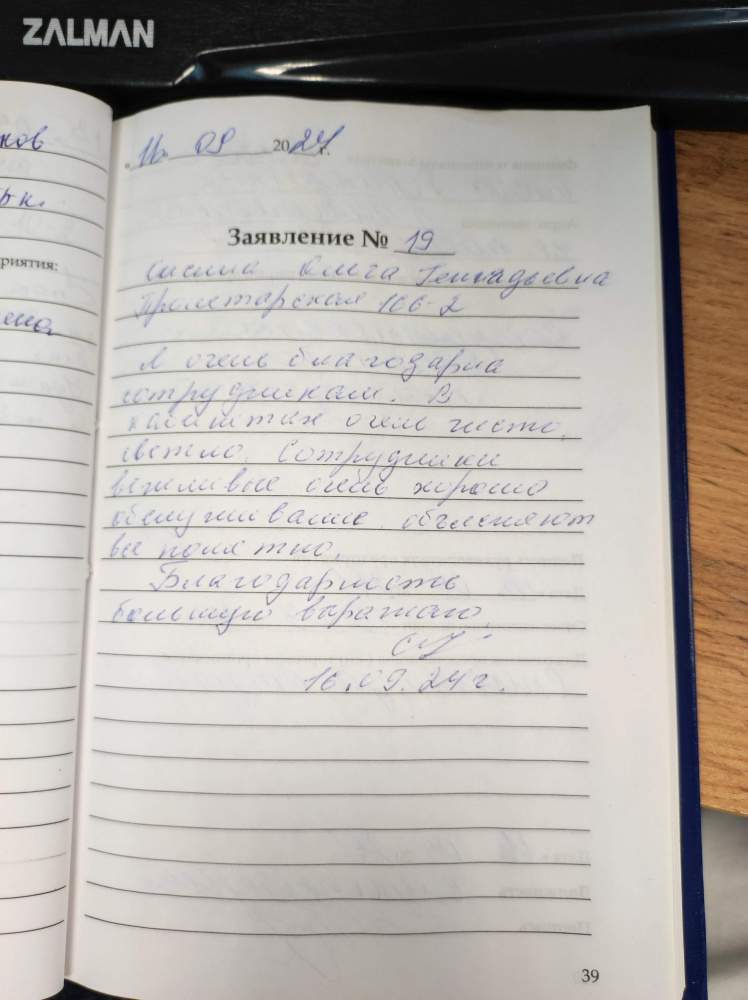 ZALMAN
ков
рк.
риятия:
16 09 2024 г.
Заявление № 19
Ольга Геннадьевна
Пролетарская 106-2
Я очень благодарна
сотрудникам. В
очень чисто,
светло. Сотрудники
вежливые очень хорошо
обслуживание объясняют
все понятно.
Благодарность
большую выражаю.
16.09.24 г.
39